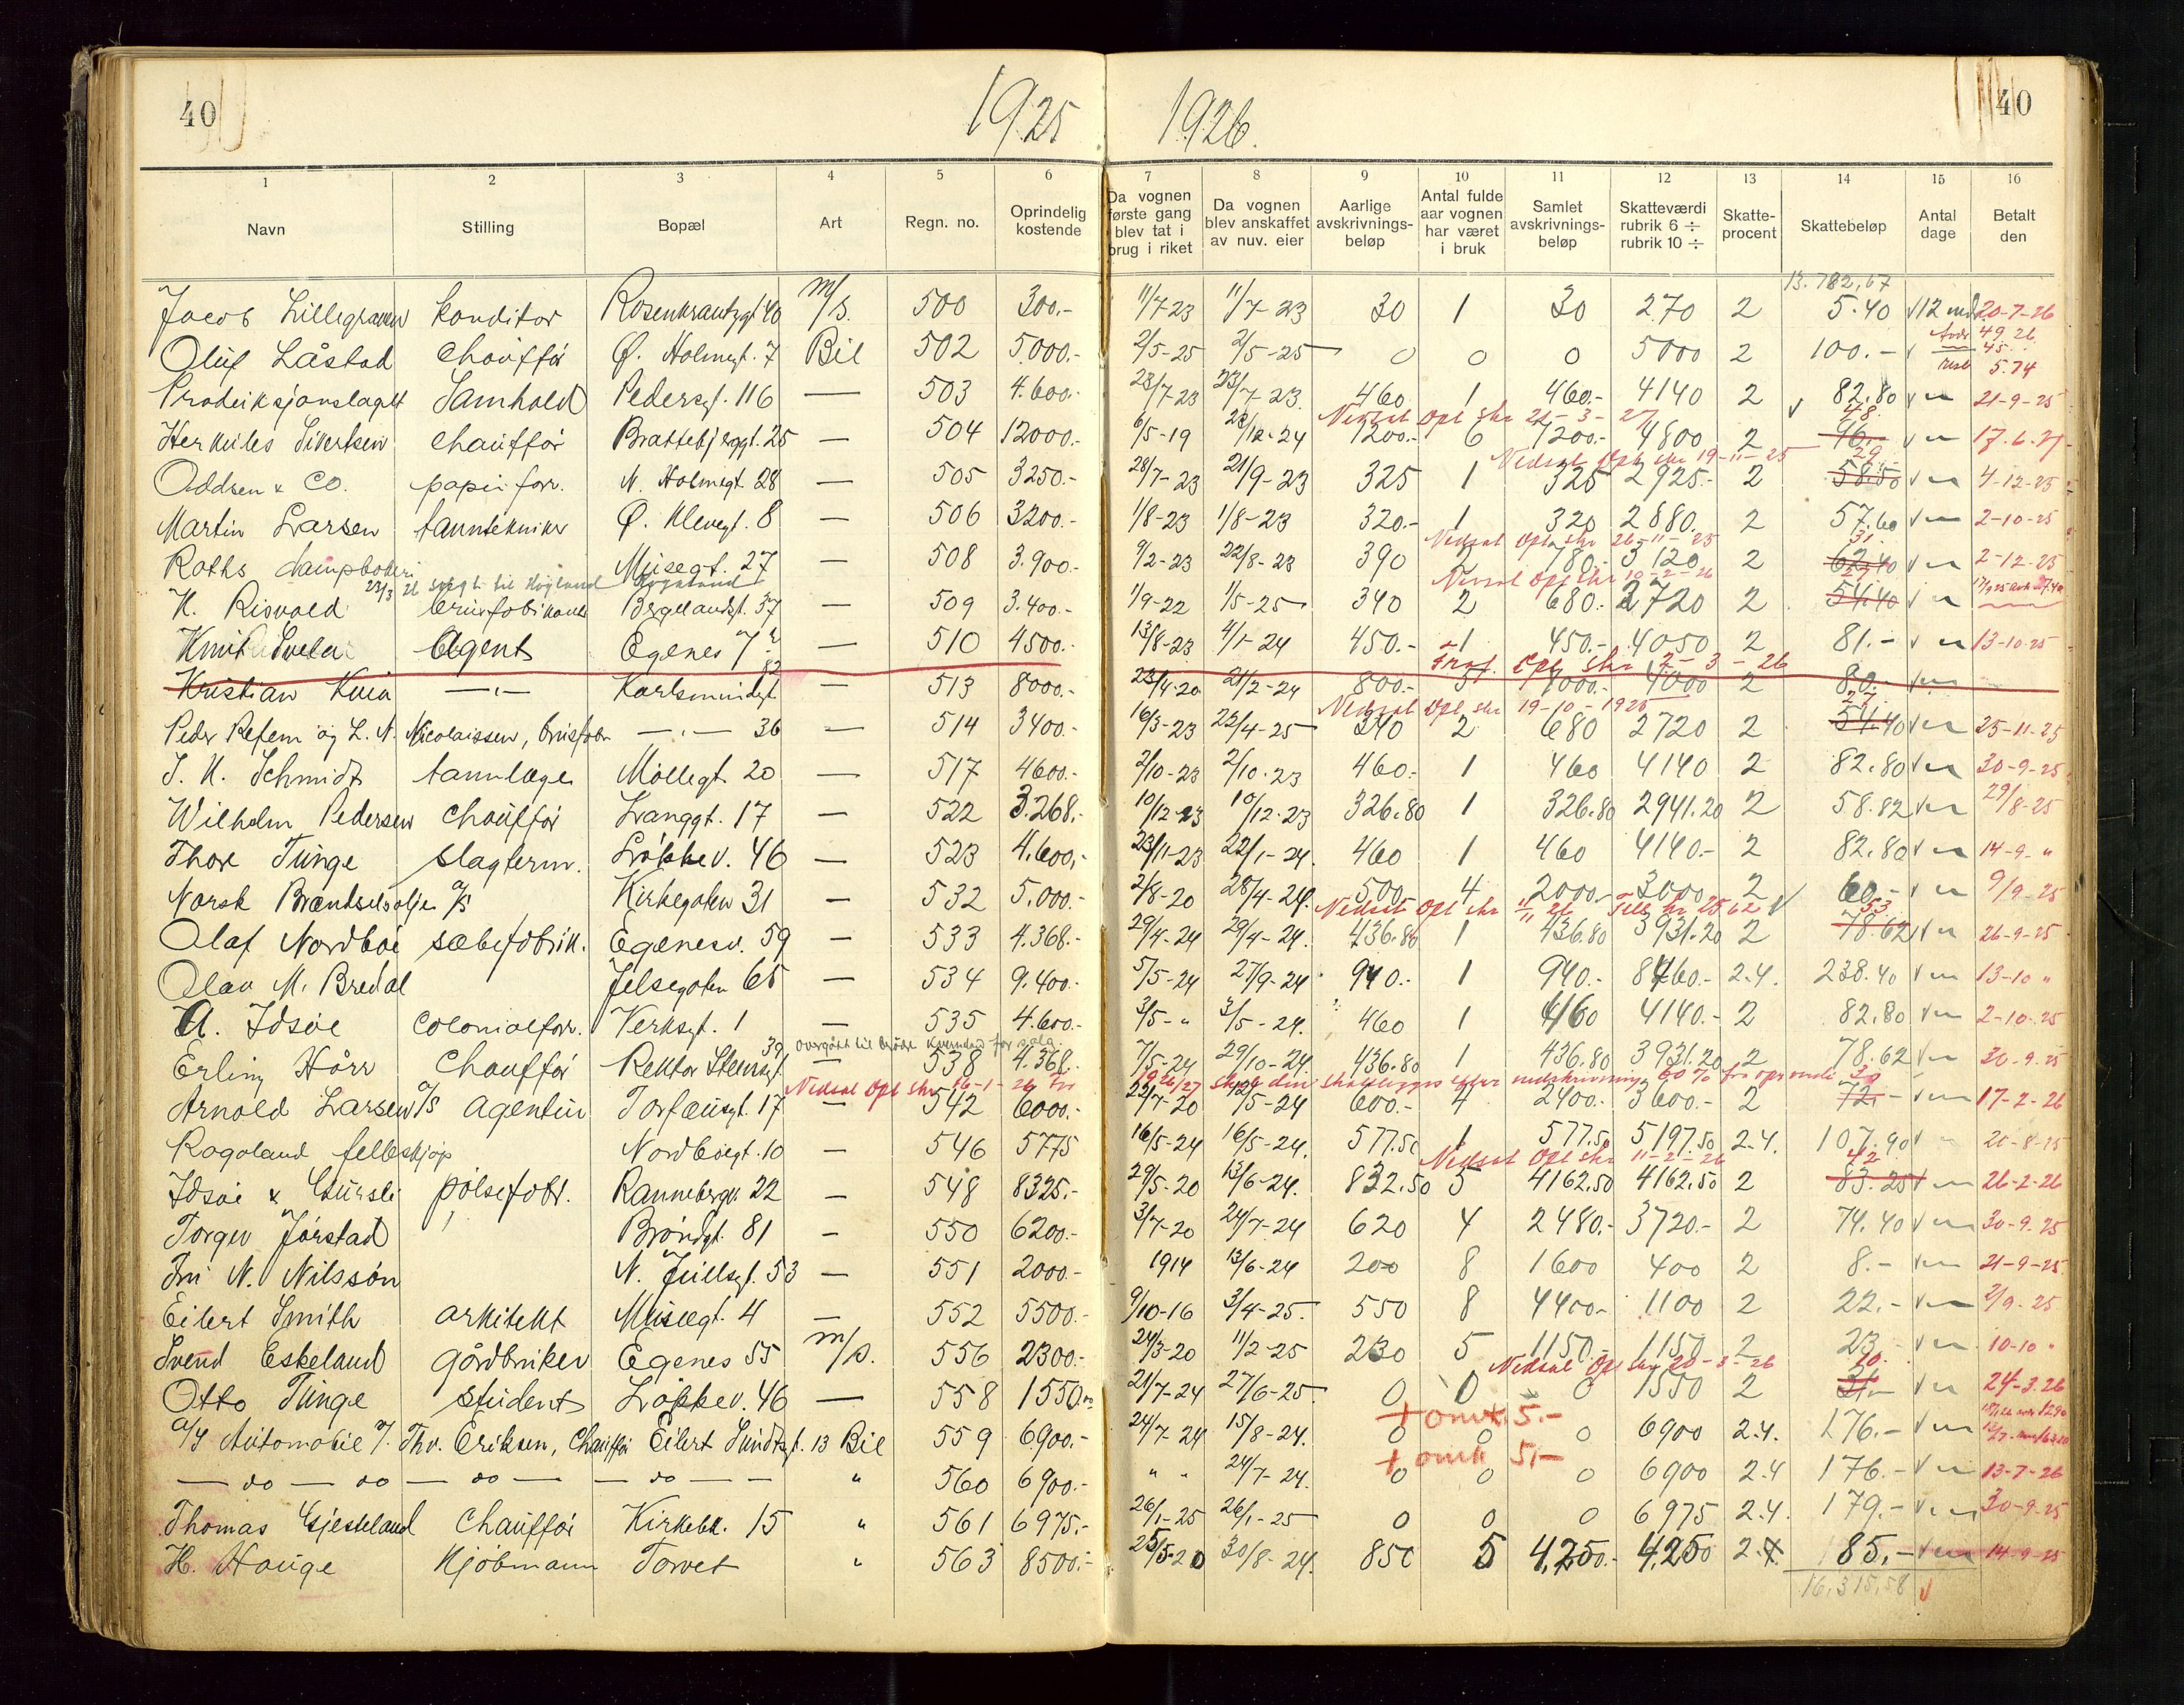 40
1925
1926.
40
1 2 3 4 5 6 7 8 9 10 11 12 13 14 15 16
Navn Stilling Bopæl Art Regn. no. Oprindelig kostende Da vognen første gang blev tat i brug i riket Da vognen blev anskaffet av nuv. eier Aarlige avskrivnings-beløp Antal fulde aar vognen har været i bruk Samlet avskrivnings-beløp Skatteværdi rubrik 6 ÷ rubrik 10 ÷ Skatte-procent Skattebeløp Antal dage Betalt den
13.782,67
Jacob Lillegraven konditor Rosenkrantzgt 40 m/s. 500 300.- 11/7-23 11/7-23 30 1 30 270 2 5.40 12 md 20-7-26
Oluf Låstad Chauffør Ø. Holmegt. 7 Bil 502 5.000.- 2/5-25 2/5-25 0 0 0 5000 2 100.- 49.26 45 rest 5.74
Produksjonslaget Samhold Pedersgt. 116 — 503 4.600.- 23/7-23 23/7-23 460 1 460.- 4140 2 82.80 21-9-25
Nedsat Opl skr 21-3-27 48.
Herkules Sivertsen chauffør Brattebjerggt. 25 — 504 12000.- 6/5-19 22/12-24 1200.- 6 7200.- 4800 2 96.- 17.6.27
Nedsat Opl skr 19-11-25 29
Oddsen & Co. papirforr. N. Holmegt. 28 — 505 3250.- 28/7-23 21/9-23 325 1 325 2925.- 2 58.50 4-12-25
Martin Larsen tanntekniker Ø. Klevegt. 8 — 506 3200.- 1/8-23 1/8-23 320.- 1 320 2880. 2 57.60 2-10-25
Nedsat Opl skr 26-11-25 31.
Roths Dampbakeri Musegt. 27 — 508 3.900.- 9/2-23 22/8-23 390 2 780.- 3120 2 62.40 2-12-25
23/3 26 solgt til Høgland Høgeland Nedsat Opl skr 10-2-26 27
K. Risvold brusfabrikant Bergelandsgt. 37 — 509 3.400.- 1/9-22 1/5-25 340 2 680.- 2720 2 54.40
Knut Svela Agent Egenes 7 — 510 4500.- 13/8-23 4/1-24 450.- 1 450.- 4050 2 81.- 13-10-25
Frat. Opl skr 2-3-26
Kristian Kuia —"— Karlsmindegt. 82 — 513 8000.- 23/4-20 21/2-24 800.- 5 4000.- 4000 2 80.-
Nedsat Opl skr 19-10-1925 27
Peder Refem og L. N. Nicolaissen, brusfabr. —"— 36 — 514 3400.- 16/3-23 22/4-25 340 2 680 2720 2 54.40 25-11-25
J. K. Schmidt tannlæge Møllegt. 20 — 517 4600.- 2/10-23 2/10-23 460.- 1 460 4140 2 82.80 30-9-25
Wilhelm Pedersen Chauffør Langgt. 17 — 522 3.268.- 10/12-23 10/12-23 326.80 1 326.80 2941.20 2 58.82 29/8-25
Thor Tunge slagterm. Løkkev. 46 — 523 4.600,- 23/11-23 22/1-24. 460 1 460 4140.- 2 82.80 14-9-"
Norsk Brændselsolje A/S Kirkegaten 31 — 532 5.000.- 2/8-20 28/4-24. 500.- 4 2000.- 3000 2 60.- 9/9-25
Nedsat Opl skr 11/11 26 53
Olaf Nordbøe sæbefabrik. Egenesv. 59 — 533 4.368.- 29/4-24 29/4-24. 436.80 1 436.80 3931.20 2 78.62 26-9-25
Olav M. Bredal Jelsegaten 65 — 534 9.400.- 5/5-24 27/9-24 940.- 1 940.- 8460.- 2.4. 238.40 13-10 "
A. Idsøe Colonialforr. Verksgt. 1 — 535 4.600.- 3/5-" 3/5-24. 460 1 460 4140.- 2 82.80 2-10-25
Erling Hårr Chauffør Rektor Steensgt. 39 — 538 4.368. 7/5-24 29/10-24. 436.80 1 436.80 3931.20 2 78.62 30-9.25
Nedsat Opl skr 16-1-26
Arnold Larsen A/S agentur Torfæusgt. 17 — 542 6000.- 22/7-20 /5-24 600.- 4 2400.- 3600.- 2 72.- 17-2-26
Rogaland felleskjøp Nordbøegt. 10 — 546 5775 16/5-24 16/5-24. 577.50 1 577.50 5197.50 2.4. 107.90 20-8-25
Nedsat Opl skr 11-2-26 42
Idsøe & pølsefabr. Rannebergv. 22 — 548 8325.- 29/5-20 13/6-24. 832.50 5 4162.50 4162.50 2 83.25 26-2-26
Torger Jørstad Brøndgt. 81 - 550 6200.- 3/7-20 24/7-24 620 4 2480.- 3720.- 2 74.40 30-9.25
N. Nilssøn N. Juellsgt. 53 — 551 2000.- 1914 13/6-24 200 8 1600 400 2 8.- 21-9-25
Eilert Smith arkitekt Musegt. 4 — 552 5500.- 9/10-16 3/4-25. 550 8 4400.- 1100 2 22.- 2/9-25
Svend Eskeland gårdbruker Egenes 55 m/s. 556 2300.- 24/3-20 11/2-25 230 5 1150.- 1150 2 23 10-10 "
Nedsat Opl skr 20-3-26 10.
Otto Tunge student Løkkev. 46 — 558 1550 21/7-24 27/6-25 0 0 0 1550 2 31.- 24-3.26
+ omk. 5.-
A/S Automobile v/ Thv. Eriksen, Chauffør Eilert Sundtsgt. 13 Bil 559 6900.- 24/7-24 15/8-24. 0 0 0 6900 2.4. 176.-
+ omk 5,-
— do — do — do — — do — — " 560 6900.- " " 24/7-24. 0 0 0 6900 2.4 176.- 13-7-26
Thomas Gjesteland Chauffør Kirkebk. 15 " 561 6975.- 26/1-25 26/1-25 0 0 0 6975 2.4. 179.- 30-9.25
H. Hauge Kjøbmann Torvet " 563 8500.- 25/5-20 30/8-24. 850 5 4,250.- 4,250 2.4 85.- 14-9-25
16,315,58